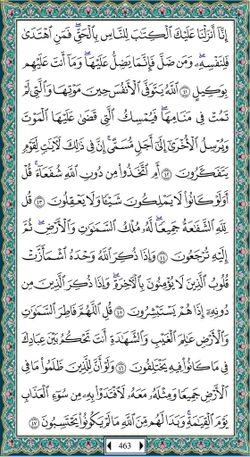 إِنَّا أَنزَلْنَا عَلَيْكَ ٱلْكِتَٰبَ لِلنَّاسِ بِٱلْحَقِّ ۖ فَمَنِ ٱهْتَدَىٰ
فَلِنَفْسِهِۦ ۖ وَمَن ضَلَّ فَإِنَّمَا يَضِلُّ عَلَيْهَا ۖ وَمَآ أَنتَ عَلَيْهِم
بِوَكِيلٍ ٤١ ٱللَّهُ يَتَوَفَّى ٱلْأَنفُسَ حِينَ مَوْتِهَا وَٱلَّتِى لَمْ
تَمُتْ فِى مَنَامِهَا ۖ فَيُمْسِكُ ٱلَّتِى قَضَىٰ عَلَيْهَا ٱلْمَوْتَ
وَيُرْسِلُ ٱلْأُخْرَىٰٓ إِلَىٰٓ أَجَلٍ مُّسَمًّى ۚ إِنَّ فِى ذَٰلِكَ لَءَايَٰتٍ لِّقَوْمٍ
يَتَفَكَّرُونَ ٤٢ أَمِ ٱتَّخَذُوا۟ مِن دُونِ ٱللَّهِ شُفَعَآءَ ۚ قُلْ
أَوَلَوْ كَانُوا۟ لَا يَمْلِكُونَ شَيْـًٔا وَلَا يَعْقِلُونَ ٤٣ قُل
لِّلَّهِ ٱلشَّفَٰعَةُ جَمِيعًا ۖ لَّهُۥ مُلْكُ ٱلسَّمَٰوَٰتِ وَٱلْأَرْضِ ۖ ثُمَّ
إِلَيْهِ تُرْجَعُونَ ٤٤ وَإِذَا ذُكِرَ ٱللَّهُ وَحْدَهُ ٱشْمَأَزَّتْ
قُلُوبُ ٱلَّذِينَ لَا يُؤْمِنُونَ بِٱلْءَاخِرَةِ ۖ وَإِذَا ذُكِرَ ٱلَّذِينَ مِن
دُونِهِۦٓ إِذَا هُمْ يَسْتَبْشِرُونَ ٤٥ قُلِ ٱللَّهُمَّ فَاطِرَ ٱلسَّمَٰوَٰتِ
وَٱلْأَرْضِ عَٰلِمَ ٱلْغَيْبِ وَٱلشَّهَٰدَةِ أَنتَ تَحْكُمُ بَيْنَ عِبَادِكَ
فِى مَا كَانُوا۟ فِيهِ يَخْتَلِفُونَ ٤٦ وَلَوْ أَنَّ لِلَّذِينَ ظَلَمُوا۟ مَا فِى
ٱلْأَرْضِ جَمِيعًا وَمِثْلَهُۥ مَعَهُۥ لَٱفْتَدَوْا۟ بِهِۦ مِن سُوٓءِ ٱلْعَذَابِ
يَوْمَ ٱلْقِيَٰمَةِ ۚ وَبَدَا لَهُم مِّنَ ٱللَّهِ مَا لَمْ يَكُونُوا۟ يَحْتَسِبُونَ ٤٧
463